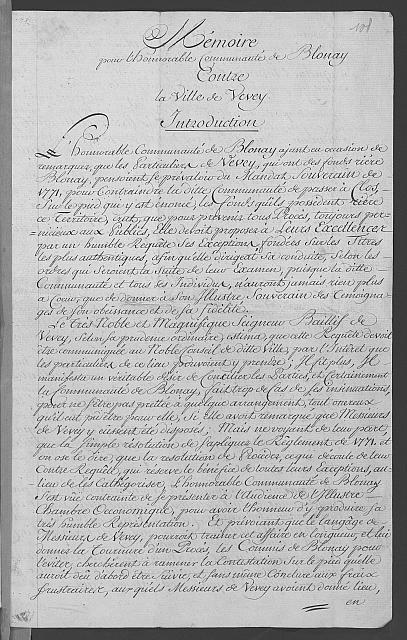 101
Mémoire
pour l'honnorable Communauté de Blonay
Contre
la Ville de Vevey.
Introduction
L'honnorable Communauté de Blonay ayant eu occasion de
remarquer, que les Particuliers de Vevey, qui ont des fonds riere
Blonay, pensoient se prévaloir du Mandat Souverain de
1771, pour Contraindre la ditte Communauté de passer à Clos,
Sur le pied qui y est énoncé, les fonds qu'ils possèdent riere
ce Territoire, crut, que pour prévenir tous Procès, toujours per-
nicieux aux Publics, Elle devoit proposer à Leurs Excellences
par un humble Requête ses Exceptions fondées Sur les Titres
les plus authentiques, afin qu'elle dirigeat sa conduite, Selon les
ordres qui Seroient la Suite de leur Examen, puisque la ditte
Communauté et tous Ses Individus, n'auront jamais rien plus
à Coeur, que de donner à Son Illustre Souverain des Témoigna-
ges de Son obeissance et de Sa fidelité.
Le Très Noble et Magnifique Seigneur Baillif de
Vevey, Selon Sa prudence ordinaire, estima, que cette Requête devoit
être communiquée au Noble Conseil de ditte Ville, par l'intérêt que
les particuliers de ce lieu pouvoient y prendre; Il fit plus, Il
manifesta un véritable désir de Concilier les Parties, Et certainement
la Communauté de Blonay, fait trop de cas de ses insinuations,
pour ne S'être pas prêtée à quelque arrangement, tout onereux
qu'il eut pu être pour elle, Si Elle avoit remarqué que Messieurs
de Vevey y eussent été disposés; Mais ne voyant de leur part,
que la Simple résolution de S'apliquer le Règlement de 1771. et
on ose le dire, que la resolution de Plaider, ce qui découle de leur
Contre Requête, qui réserve le bénéfice de toutes leurs Exceptions, au-
lieu de les Cathégoriser, L'honnorable Communauté de Blonay
S'est vüe contrainte de se présenter à l'Audience de l'Illustre
Chambre Oeconomique, pour avoir l'honneur d'y produire sa
très humble Représentation. Et prévoiant que le langage de
Messieurs de Vevey, pourroit trainer cet affaire en longueur, et lui
donner la Tournure d'un Procès, les Commis de Blonay pour
l'eviter, cherchèrent à ramener la Contestation Sur le pied qu'elle
auroit dû d'abord être Suivie, et sans même Conclure aux fraix
frustraires, aux quels Messieurs de Vevey avoient donné lieu,
en